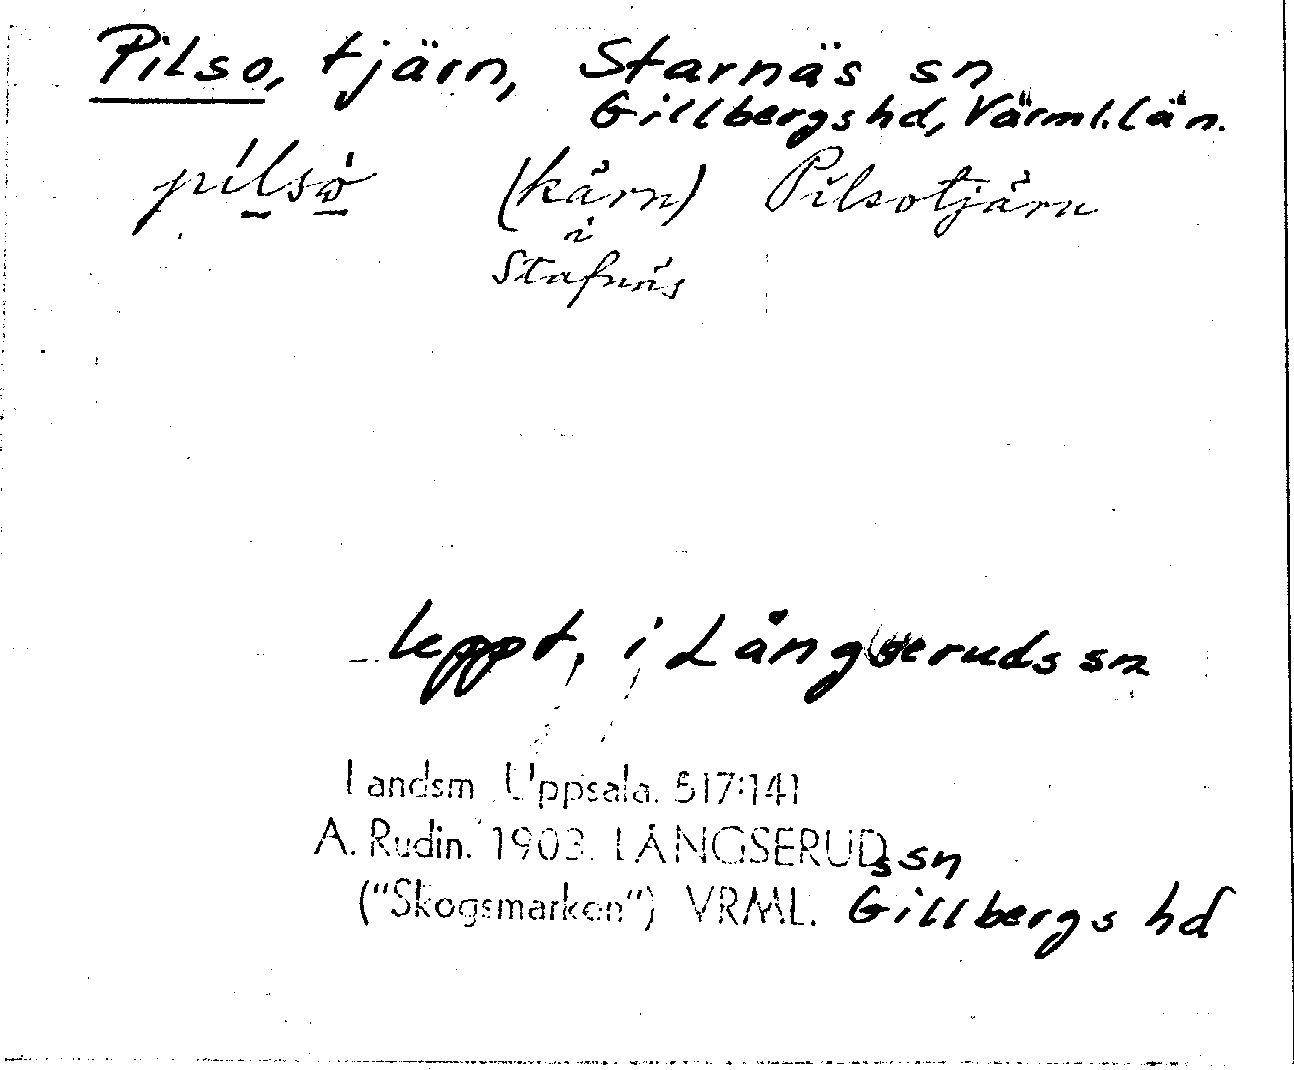 Pilso, tjärn, Starnäs sn
Gillbergs hd, Värml. län.
pilso (kärn) Pilsotjärn
i
Stafnäs
uppt, i Långseruds sn
Landsm. Uppsala. 517:141
A. Rudin. 1903. LÅNGSERUDs sn
("Skogsmarken") VRML. Gillbergs hd